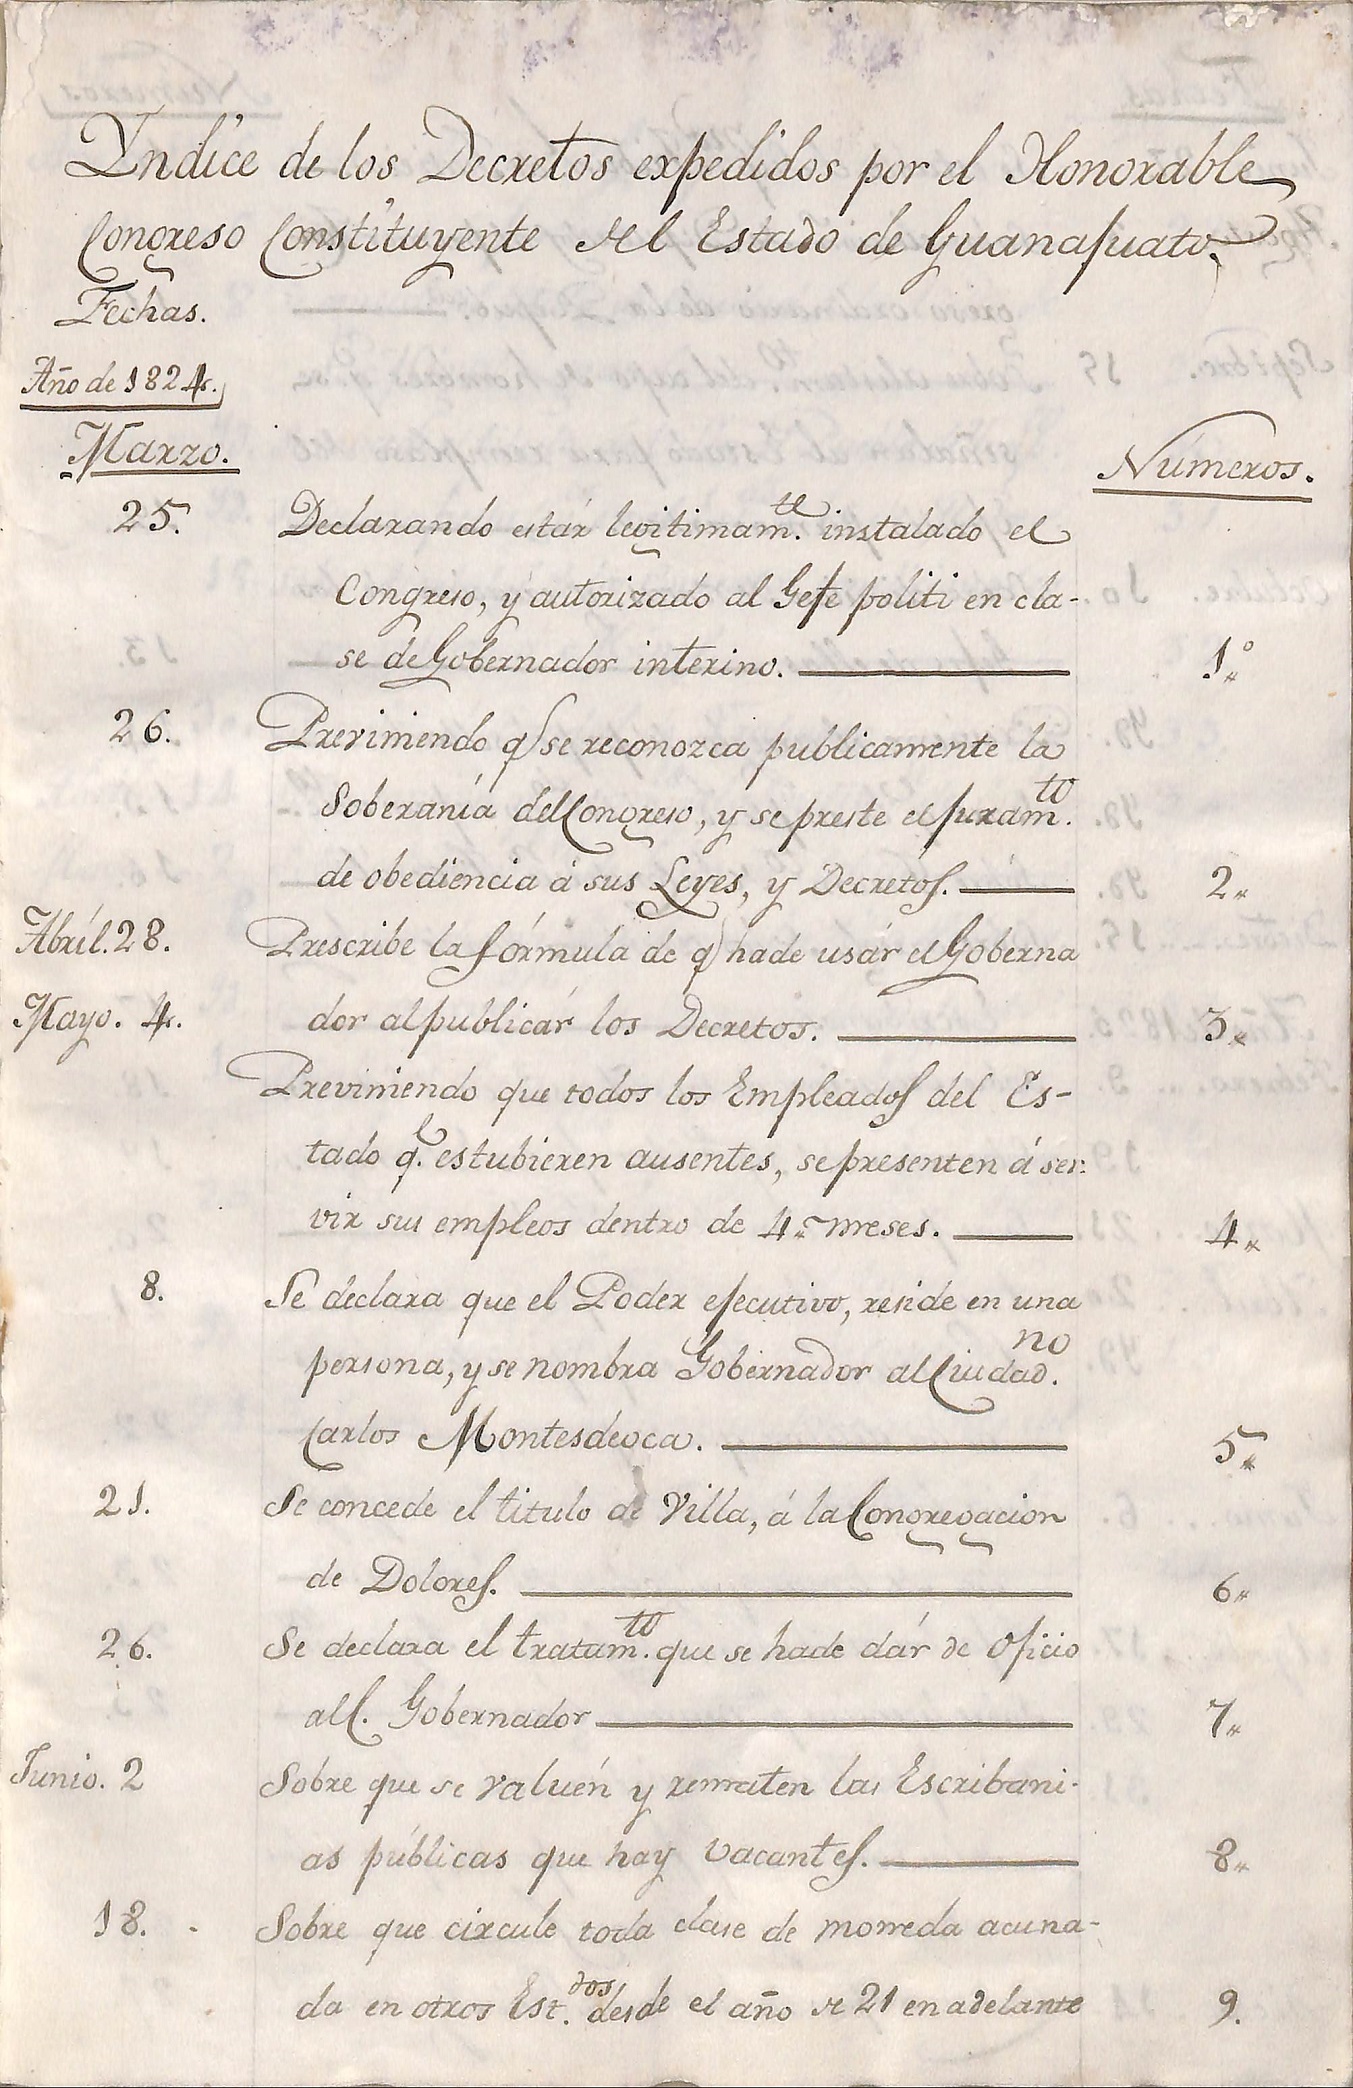 Yndice de los Decretos expedidos por el Honorable
Congreso Constituyente del Estado de Guanajuato.
Fechas.
Año de 1824.
Marzo.
Números.
25. Declarando estár legitimam.te instalado el
Congreso, y autorizado al Gefe politi en cla-
se de Gobernador interino. 1.º
26. Previniendo q se reconozca publicamente la
Soberanía del Congreso, y se preste el juram.to
de obediencia á sus Leyes, y Decretos. 2.
Abríl. 28. Prescribe la fórmula de q hade usár el Goberna
Mayo. 4. dor al publicár los Decretos. 3.
Previniendo que todos los Empleados del Es-
tado q.e estubieren ausentes, se presenten á ser-
vir sus empleos dentro de 4. meses. 4.
8. Se declara que el Poder ejecutivo, reside en una
persona, y se nombra Gobernador al Ciudad.no
Carlos Montesdeoca. 5.
21. Se concede el titulo de Villa, á la Congregacion
de Dolores. 6.
26. Se declara el tratam.to que se hade dár de oficio
al C. Gobernador 7.
Junio. 2 Sobre que se valuén y rematen las Escribani-
as públicas que hay vacantes. 8.
18. Sobre que circule toda clase de moneda acuna-
da en otros Est.dos desde el año de 21 en adelante 9.